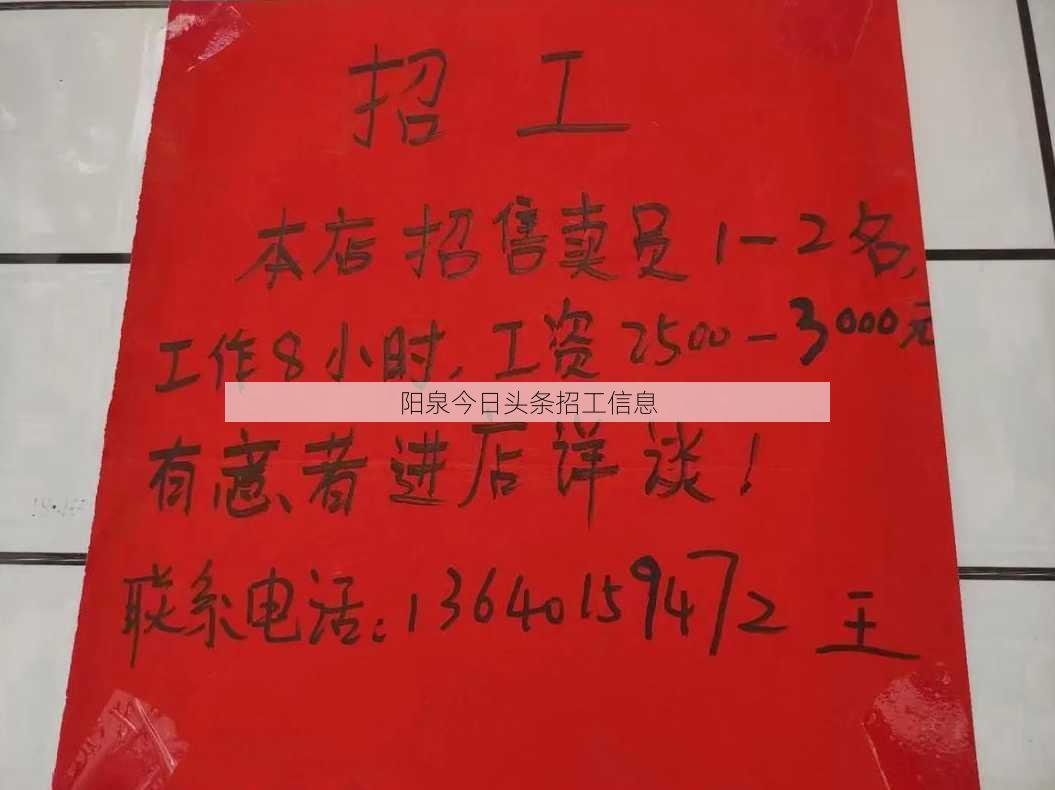 招工
本店招售卖员1-2名,
工作8小时,工资2500-3000元
阳泉今日头条招工信息
有意者进店详谈!
联系电话:13640159472 王